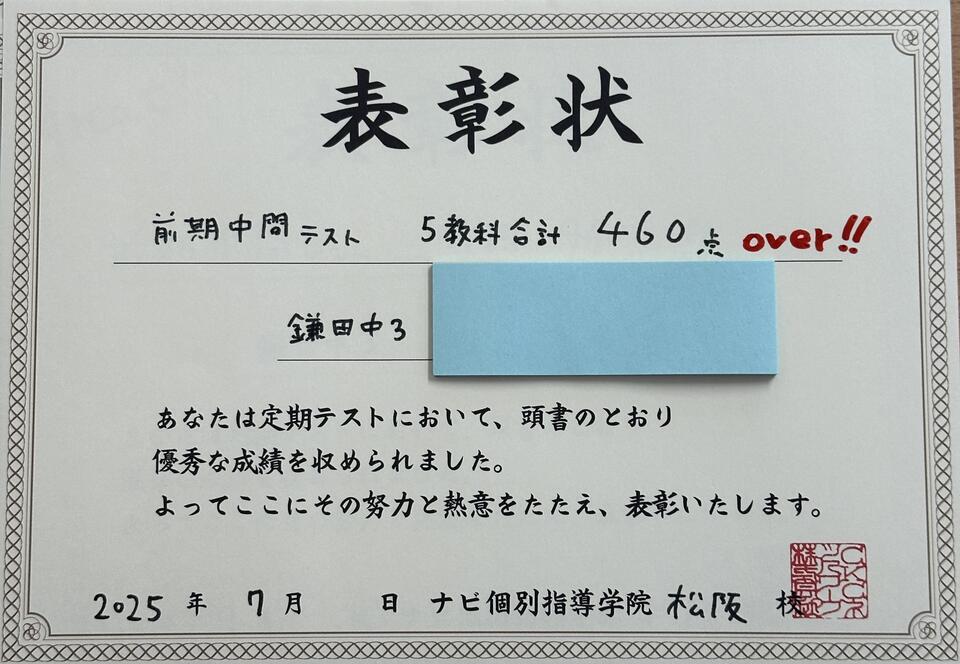 表彰状
前期中間テスト 5教科合計 460点 over!!
鎌田中3
あなたは定期テストにおいて、頭書のとおり
優秀な成績を収められました。
よってここにその努力と熱意をたたえ、表彰いたします。
2025年 7月 日 ナビ個別指導学院 松阪 校